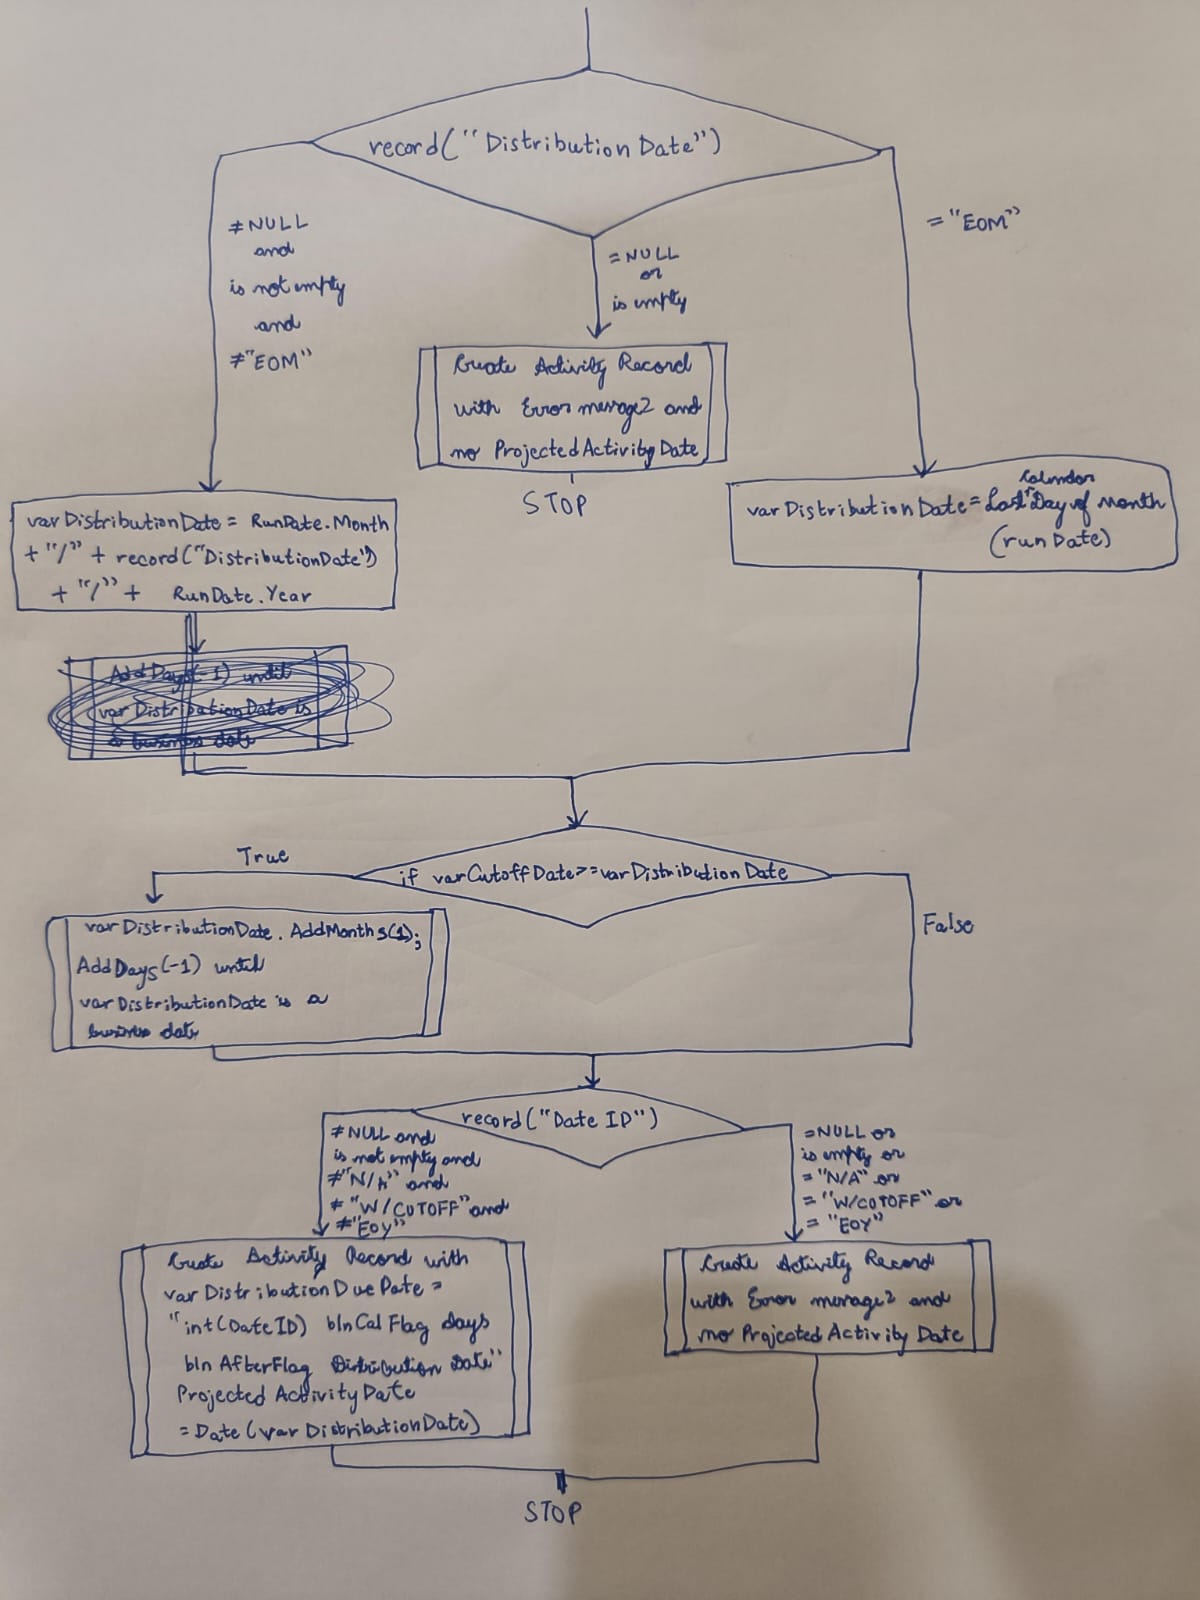 record("Distribution Date")
≠NULL
and
is not empty
and
≠"EOM"
=NULL
or
is empty
="EOM"
Create Activity Record
with Error message2 and
no Projected Activity Date
STOP
varDistributionDate = RunDate.Month
+ "/" + record("DistributionDate")
+ "/" + RunDate.Year
Calendar
varDistributionDate = Last Day of Month
(runDate)
AddDays(-1) until
varDistributionDate is
a business date
if varCutoffDate>=varDistributionDate
True
False
varDistributionDate.AddMonths(1);
AddDays(-1) until
varDistributionDate is a
business date
record("Date ID")
≠NULL and
is not empty and
≠"N/A" and
≠ "W/CUTOFF" and
≠"EOY"
=NULL or
is empty or
= "N/A" or
= "W/CUTOFF" or
= "EOY"
Create Activity Record with
varDistributionDueDate =
"int(DateID) blnCalFlag days
blnAfterFlag Distribution Date"
Projected Activity Date
= Date(varDistributionDate)
Create Activity Record
with Error message2 and
no Projected Activity Date
STOP